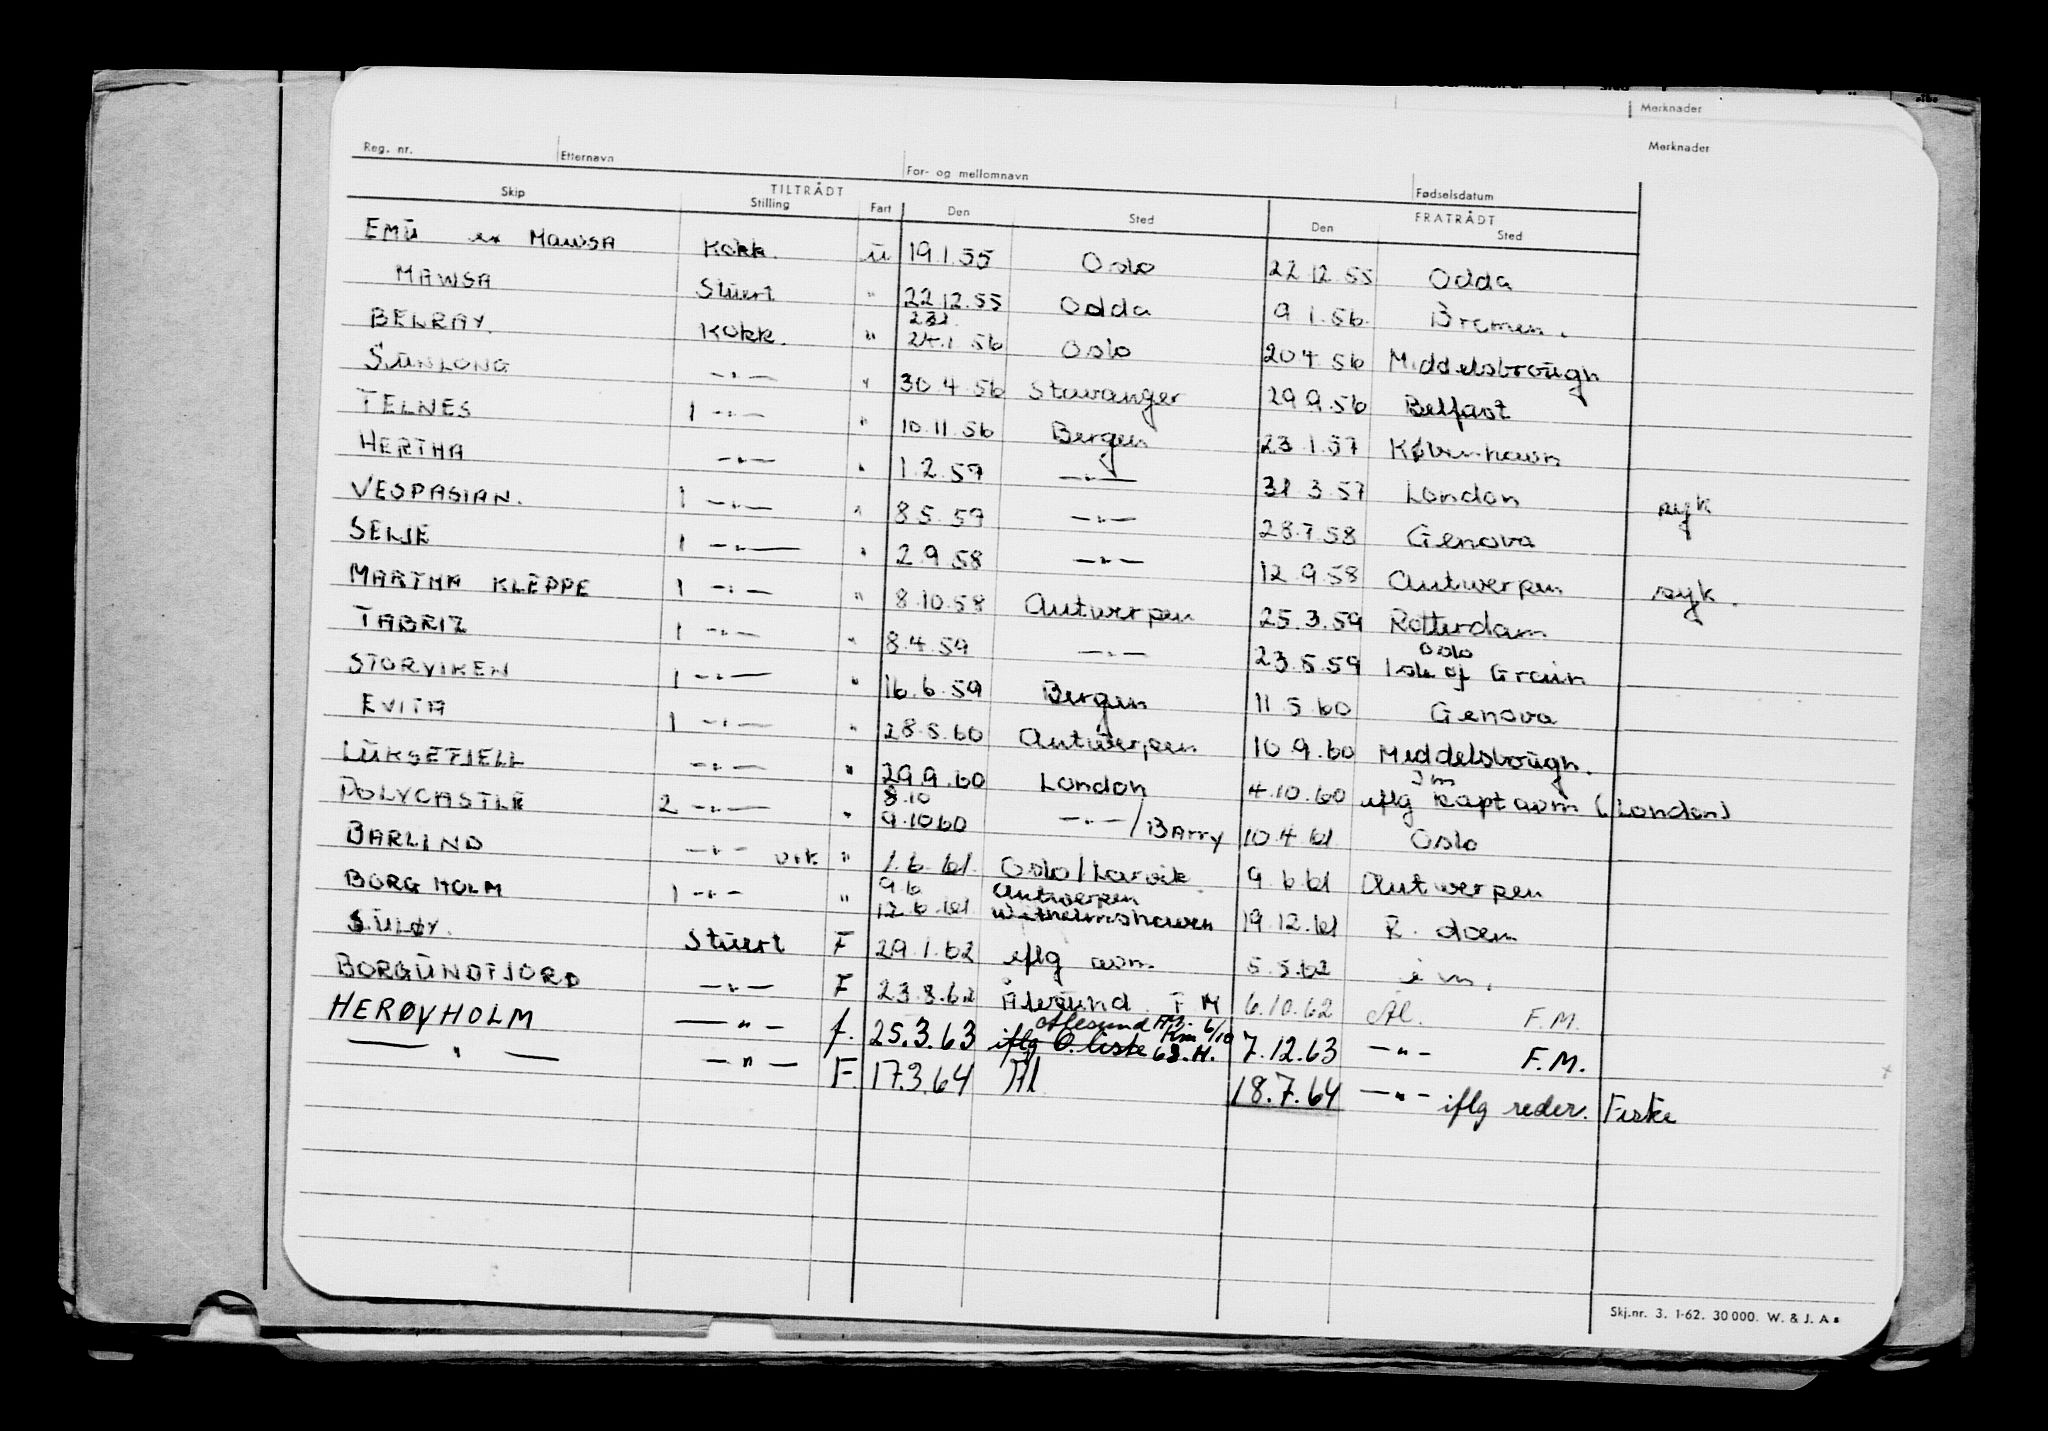 Merknader
Reg. nr. Etternavn For- og mellomnavn Fødselsdatum Merknader
TILTRÅDT FRATRÅDT
Skip Stilling Fart Den Sted Den Sted
EMU ex MAWSA Kokk. u 19.1.55 Oslo 22.12.55 Odda
MAWSA Stuert " 22.12.55 Odda 9.1.56. Bremen.
BELRAY. Kokk. " 24.1.56 Oslo 20.4.56 Middelsbrough
SUNLONG —"— " 30.4.56 Stavanger 29.9.56 Belfast
TELNES 1 —"— " 10.11.56 Bergen 23.1.57 København
HERTHA —"— " 1.2.57 —"— 31.3.57 London syk
VESPASIAN. 1 —"— " 8.5.57 —"— 28.7.58 Genova
SELJE 1 —"— " 2.9.58 —"— 12.9.58 Antwerpen syk.
MARTHA KLEPPE 1 —"— " 8.10.58 Antwerpen 25.3.59 Rotterdam
Oslo
TABRIZ 1 —"— " 8.4.59 —"— 23.5.59 Isle of Grain
STORVIKEN 1 —"— " 16.6.59 Bergen 11.5.60 Genova
EVITA 1 —"— " 28.5.60 Antwerpen 10.9.60 Middelsbough.
LUKSEFJELL —"— " 29.9.60 London 4.10.60 iflg Kapt avm (London)
8.10
POLYCASTLE 2 —"— " 9.10.60 —"— / Barry 10.4.61 Oslo
BARLIND —"— vik " 1.6.61. Oslo/Larvik 9.6.61 Antwerpen
9.6 Antwerpen
BORGHOLM 1 —"— " 12.6.61 Wilhelmshaven 19.12.61 R. dam
SULØY. Stuert F 29.1.62 iflg avm. 5.5.62
BORGUNDFJORD —"— F 23.8.62 Ålesund F M 6.10.62 Ål. F.M.
Ålesund FM. 6/10
HERØYHOLM —"— f. 25.3.63 iflg O. liste 63.M. 7.12.63 —"— F.M.
—"— —"— F 17.3.64 Ål 18.7.64 —"— iflg reder. Fiske
Skj.nr. 3. 1-62. 30 000. W. & J. A s